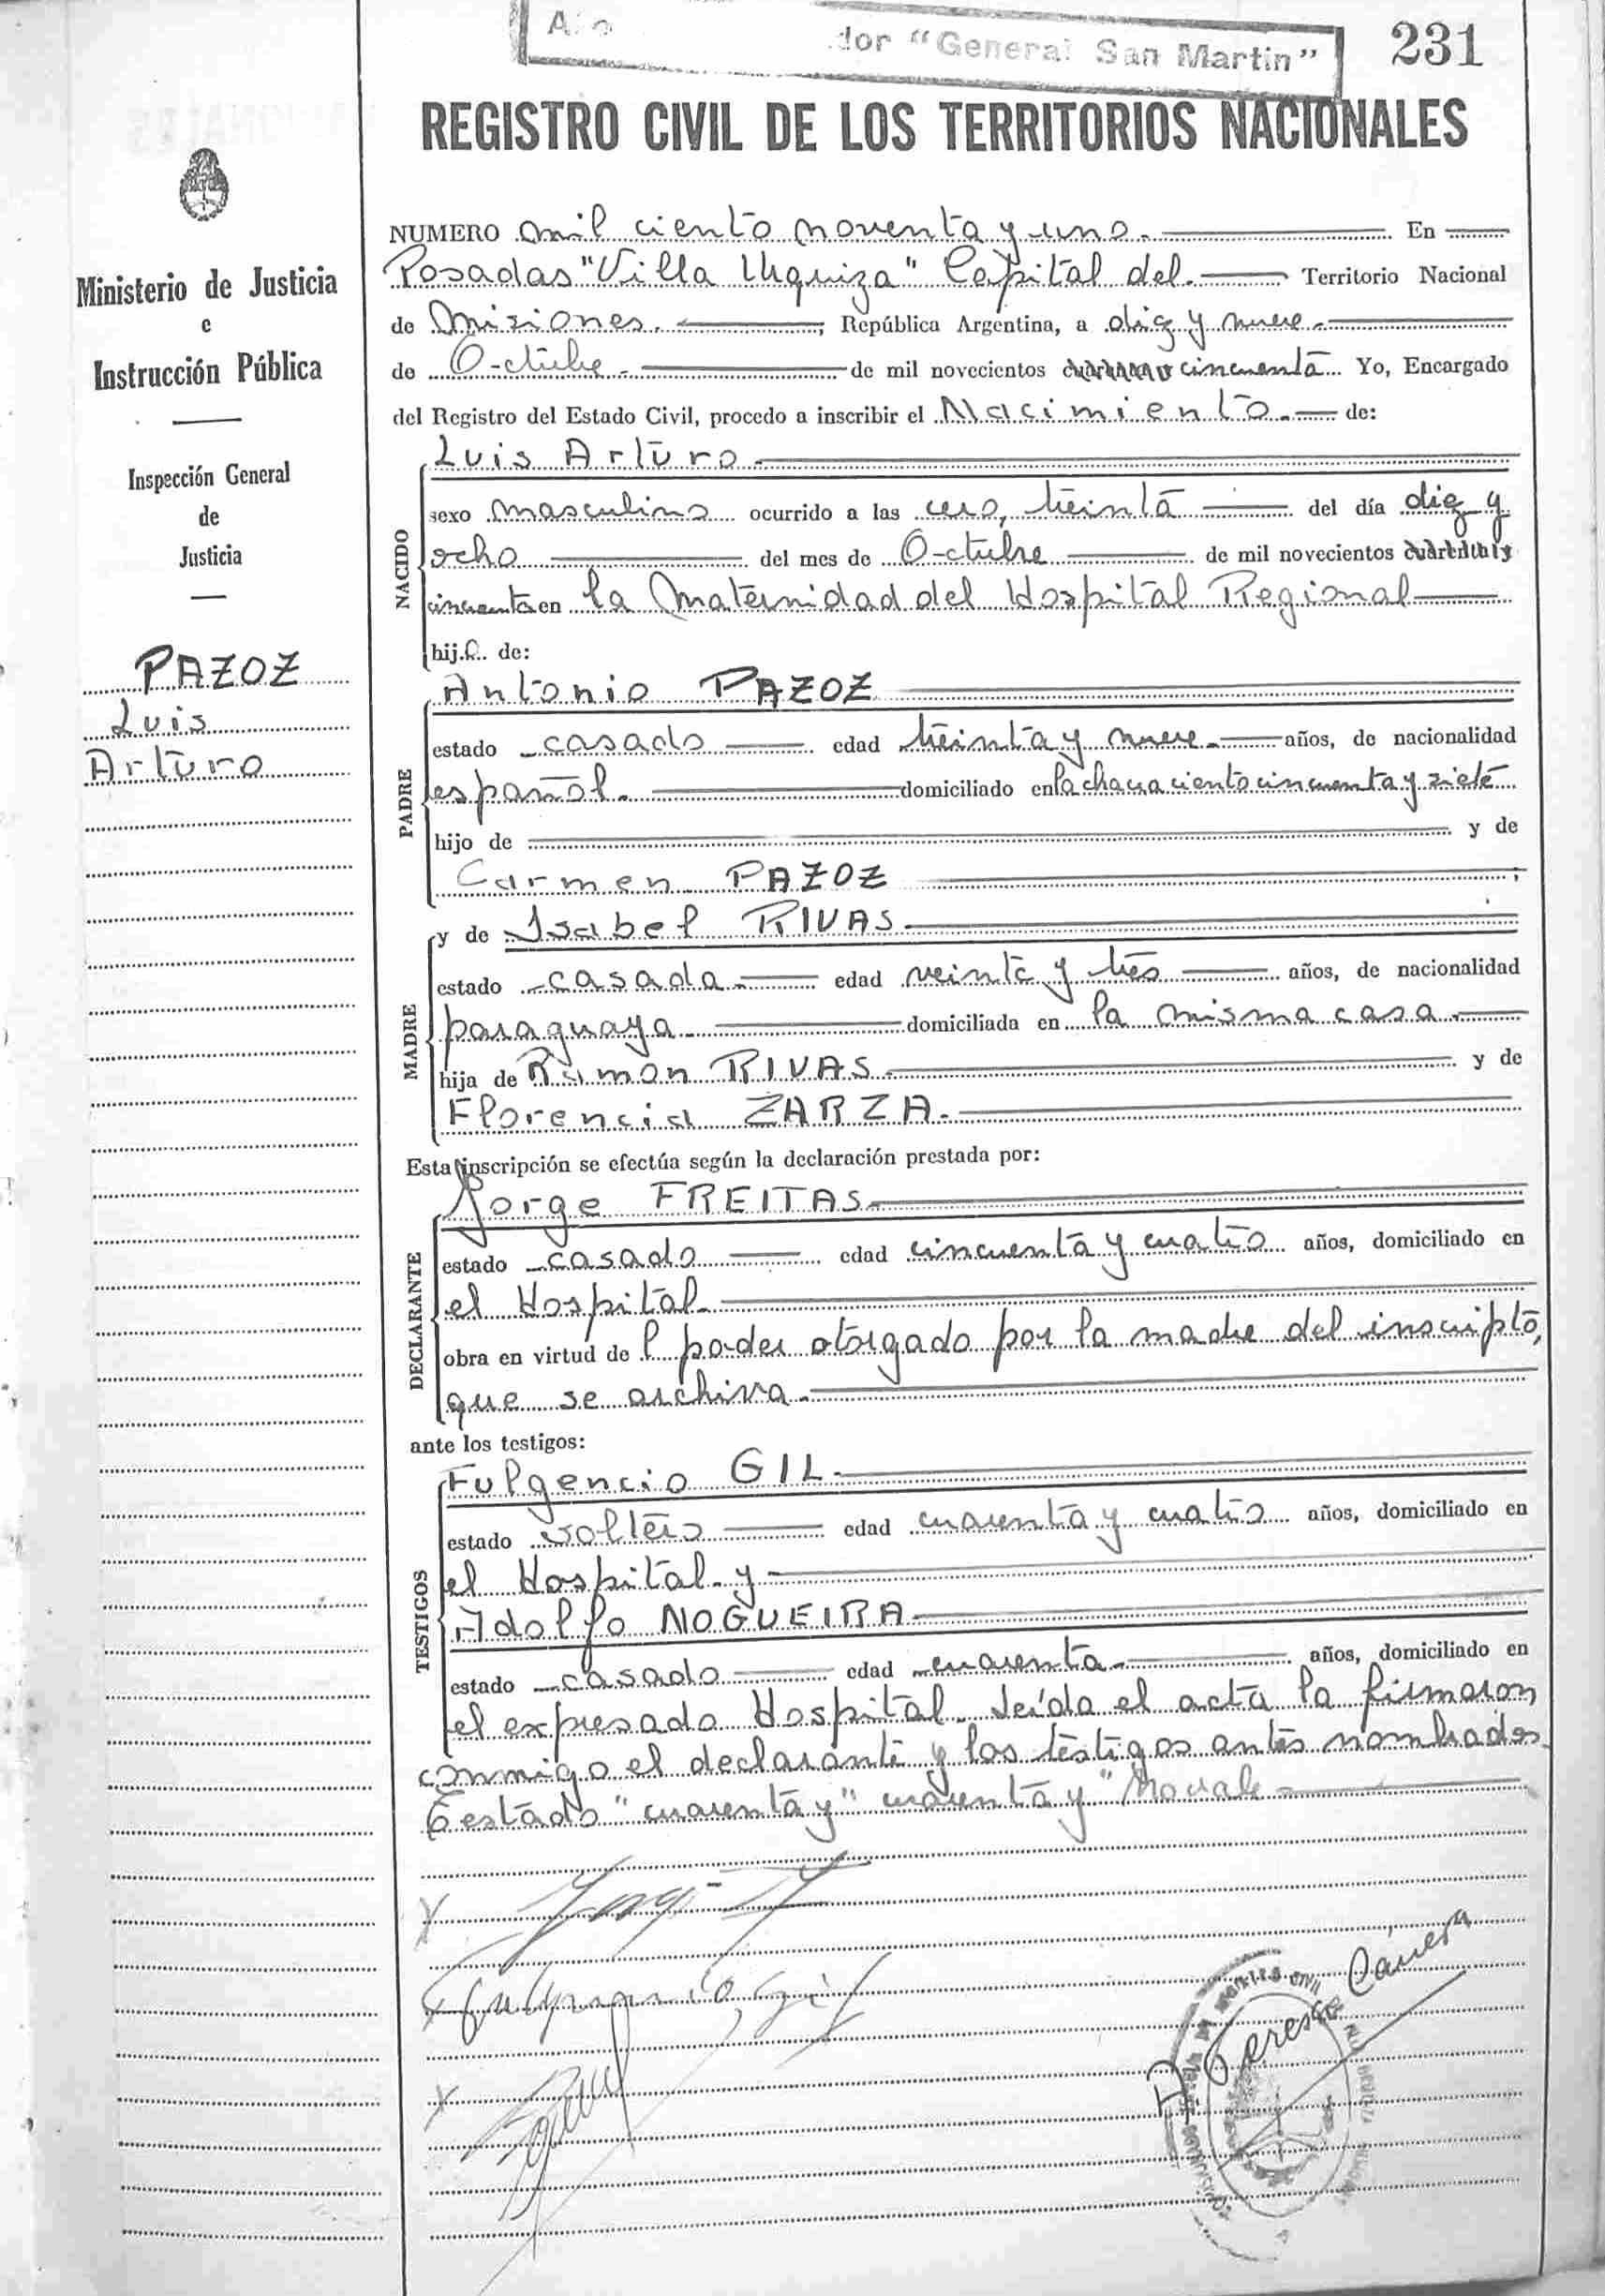 dor "General San Martin"
231
REGISTRO CIVIL DE LOS TERRITORIOS NACIONALES
Ministerio de Justicia
e
Instrucción Pública
Inspección General
de
Justicia
PAZOZ
Luis
Arturo
NUMERO mil ciento noventa y uno.- En
Posadas "Villa Urquiza" Capital del.- Territorio Nacional
de Misiones.-, República Argentina, a diez y nueve.-
de Octubre.- de mil novecientos cincuenta. Yo, Encargado
del Registro del Estado Civil, procedo a inscribir el Nacimiento.- de:
NACIDO
Luis Arturo.-
sexo masculino ocurrido a las cero, treinta del día diez y
ocho del mes de Octubre de mil novecientos cuarenta y
cincuenta en la Maternidad del Hospital Regional
hijo de:
PADRE
Antonio PAZOZ
estado casado edad treinta y nueve.- años, de nacionalidad
español.- domiciliado en la chacra ciento cincuenta y siete
hijo de y de
Carmen PAZOZ ;
MADRE
y de Isabel RIVAS.-
estado casada.- edad veinte y tres años, de nacionalidad
paraguaya domiciliada en la misma casa.-
hija de Ramon RIVAS.- y de
Florencia ZARZA.-
Esta inscripción se efectúa según la declaración prestada por:
DECLARANTE
Jorge FREITAS.-
estado casado edad cincuenta y cuatro años, domiciliado en
el Hospital.-
obra en virtud del poder otorgado por la madre del inscripto,
que se archiva.-
ante los testigos:
TESTIGOS
Fulgencio GIL.-
estado soltero edad cuarenta y cuatro años, domiciliado en
el Hospital.-y-
Adolfo NOGUEIRA.-
estado casado.- edad cuarenta.- años, domiciliado en
el expresado Hospital. Leída el acta la firmaron
conmigo el declarante y los testigos antes nombrados.
Testado "cuarenta y" cuarenta y" No vale.-
Fulgencio Gil